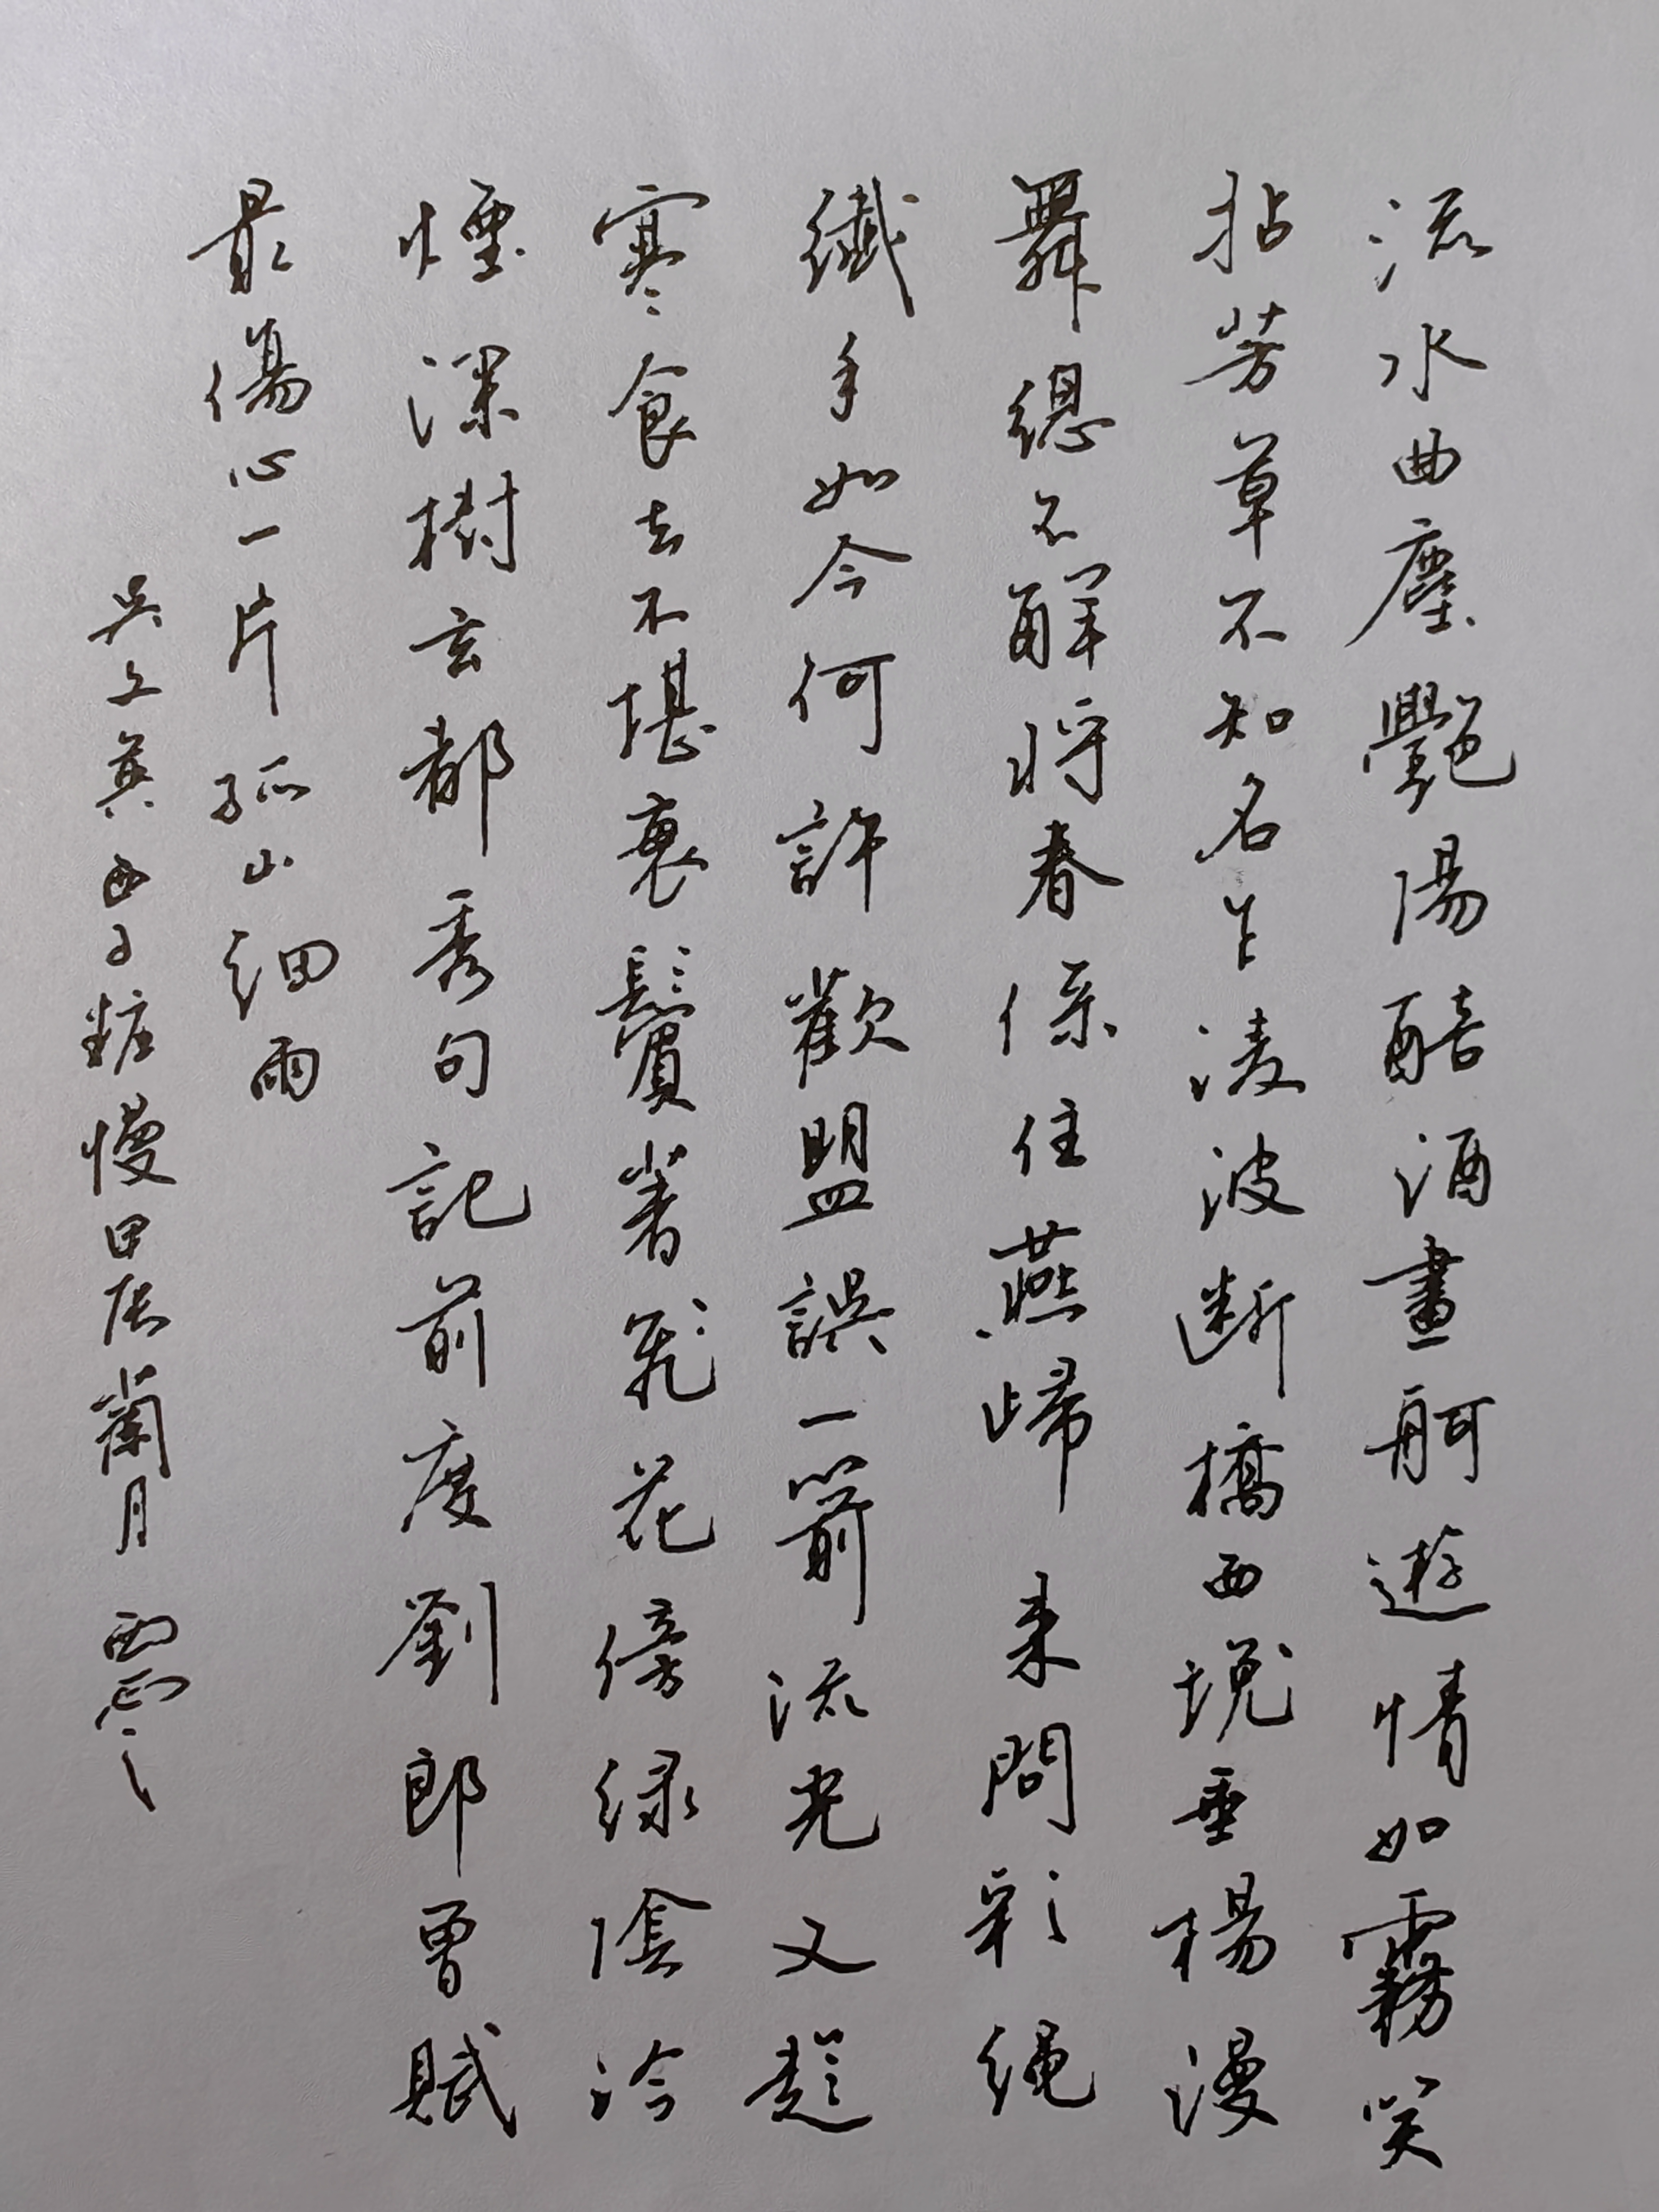 流水曲塵艷陽醅酒畫舸遊情如霧笑
拈芳草不知名乍淩波断橋西堍垂楊漫
舞總不解将春係住燕歸來問彩繩
纖手如今何許歡盟誤一箭流光又趁
寒食去不堪衰鬢著飛花傍綠陰冷
煙深樹玄都秀句記前度劉郎曾賦
最傷心一片孤山細雨
吳文英西子粧慢甲辰蘭月